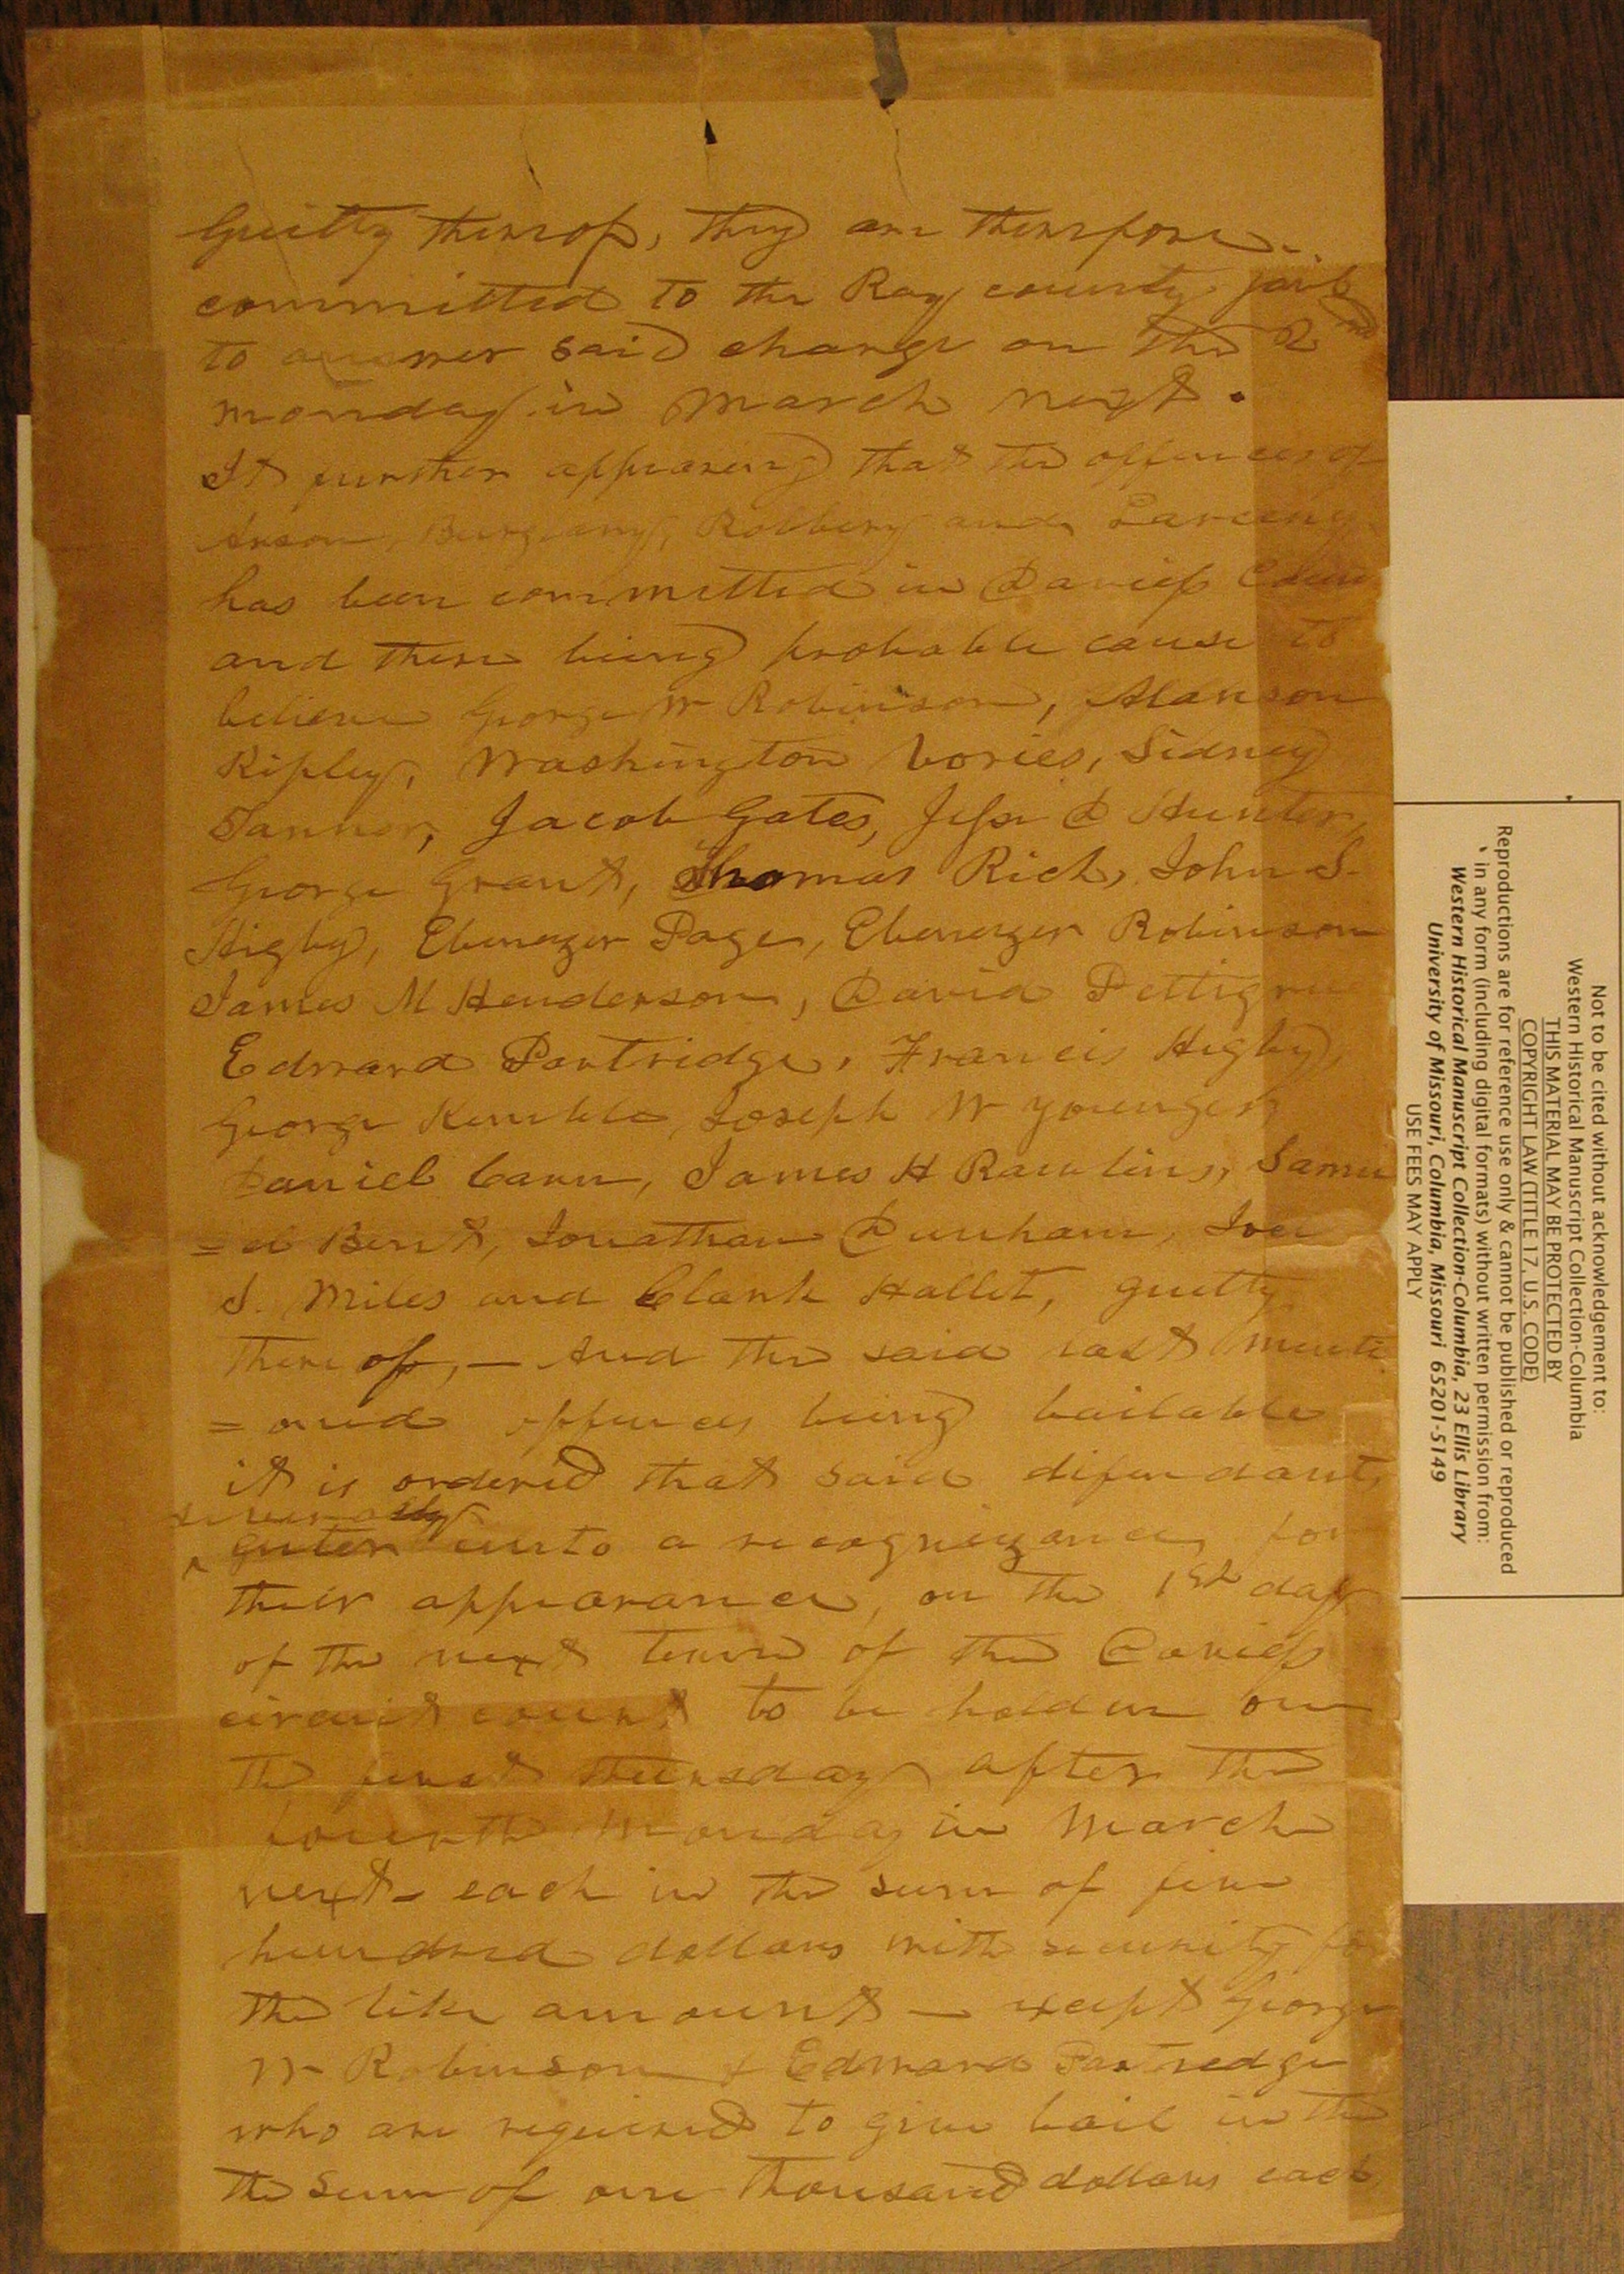 Guilty thereof, they are therefore
committed to the Ray county jail
to answer said charge on the 2nd
monday in March next.
It further appearing that the offences of
Arson, Burglary, Robbery and Larceny
has been committed in Daviess Coun
and there being probable cause to
believe George W Robinson, Alanson
Ripley, Washington Vories, Sidney
Tanner, Jacob Gates, Jesse D Hunter,
George Grant, Thomas Rich, John S.
Higby, Ebenezer Page, Ebenezer Robinson
James M Henderson, David Pettigrue
Edward Partridge, Francis Higby,
George Kimble, Joseph W Younger,
Daniel Carn, James H Rawlins, Samu
=el Bent, Jonathan Dunham, Joel
S. Miles and Clark Hallet, guilty
there of, — And the said last menti
=oned offences being bailable
it is ordered that said difendants
severally
enter into a recognizance, for
their appearance, on the 1st day
of the next term of the Daviess
circuit court to be holden on
the first thursday after the
fourth Monday in March
next - each in the sum of five
hundred dollars with security for
the like amount — except George
W Robinson & Edward Partredge
who are required to give bail in the
the sum of one thousand dollars each
Not to be cited without acknowledgement to:
Western Historical Manuscript Collection-Columbia
THIS MATERIAL MAY BE PROTECTED BY
COPYRIGHT LAW (TITLE 17, U.S. CODE)
Reproductions are for reference use only & cannot be published or reproduced
in any form (including digital formats) without written permission from:
Western Historical Manuscript Collection-Columbia, 23 Ellis Library
University of Missouri, Columbia, Missouri 65201-5149
USE FEES MAY APPLY